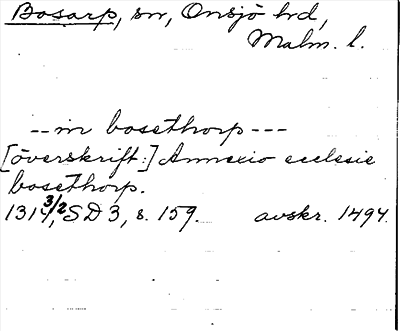 Bosarp, sn, Onsjö hd,
Malm. l.
-- in bosethorp ---
[överskrift:] Annexio ecclesie
bosethorp.
1314 3/2, SD 3, s. 159. avskr. 1494.